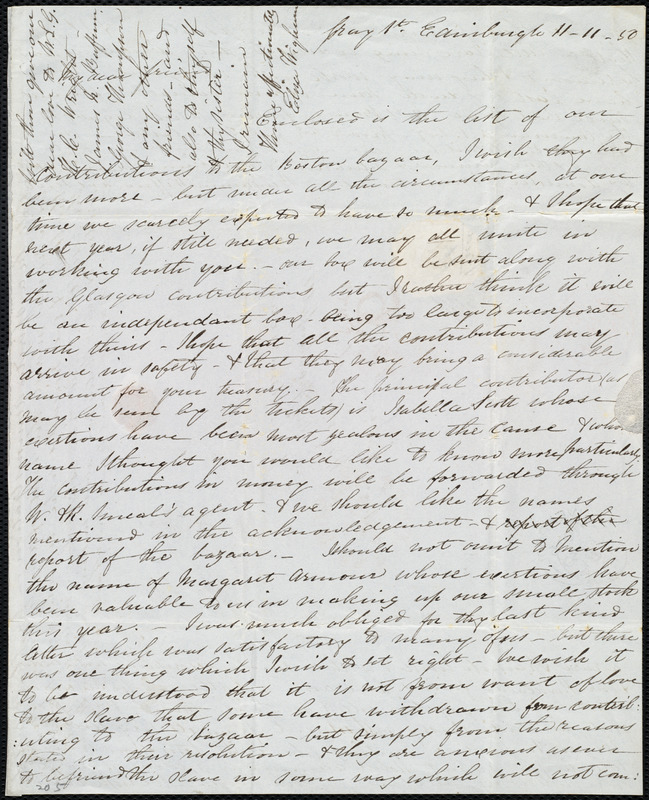 Gray St. Edinburgh 11-11-50
My dear friend
Enclosed is the list of our
contributions to the Boston bazaar, I wish they had
been more - but under all the circumstances, at one
time we scarcely expected to have so much - & I hope that
next year, if still needed, we may all unite in
working with you. - our box will be sent along with
the Glasgow contributions but I rather think it will
be an independant box - being too large to incorporate
with theirs - I hope that all the contributions may
arrive in safety - & that they may bring a considerable
amount for your treasury. - The principal contributor (as
may be seen by the tickets) is Isabella Scott whose
exertions have been most zealous in the cause & whose
name I thought you would like to know more particularly
The contributions in money will be forwarded through
W. & R. Smeal's agent - & we should like the names
mentioned in the acknowledgement - & report of the
report of the bazaar. - I should not omit to mention
the name of Margaret Armour whose exertions have
been valuable to us in making up our small stock
this year. - I was much obliged for thy last kind
letter which was satisfactory to many of us - but there
was one thing which I wish to set right - We wish it
to be understood that it is not from want of love
to the slave that some have withdrawn from contrib:
:uting to the bazaar - but simply from the reasons
stated in their resolution - & they are anxious as ever
to befriend the slave in some way which will not com:
20 5
give our
love to W.L.G.
H. C. Wright
James N. Buffum
George Thompson
& any other
friends - and
also to thyself
& thy sister -
I remain
Thine affectionately
Eliza Wigham